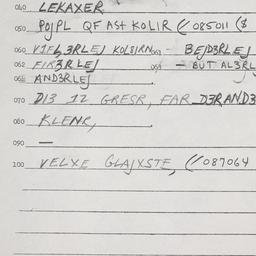 040 LEKAXER
050 POJPL QF AST KOLIR (/085011 (8
060 V1FL3RLEJ KOL8IRN 061 - BEJD3RLEJ
062 FIR3RLEJ 063 - BUT AL3RL
065 AND3RLEJ
070 D13 12 GRESR, FAR D3RAND3
080 KLENC,
090 —
100 VELXE GLAJXSTE, (/087064